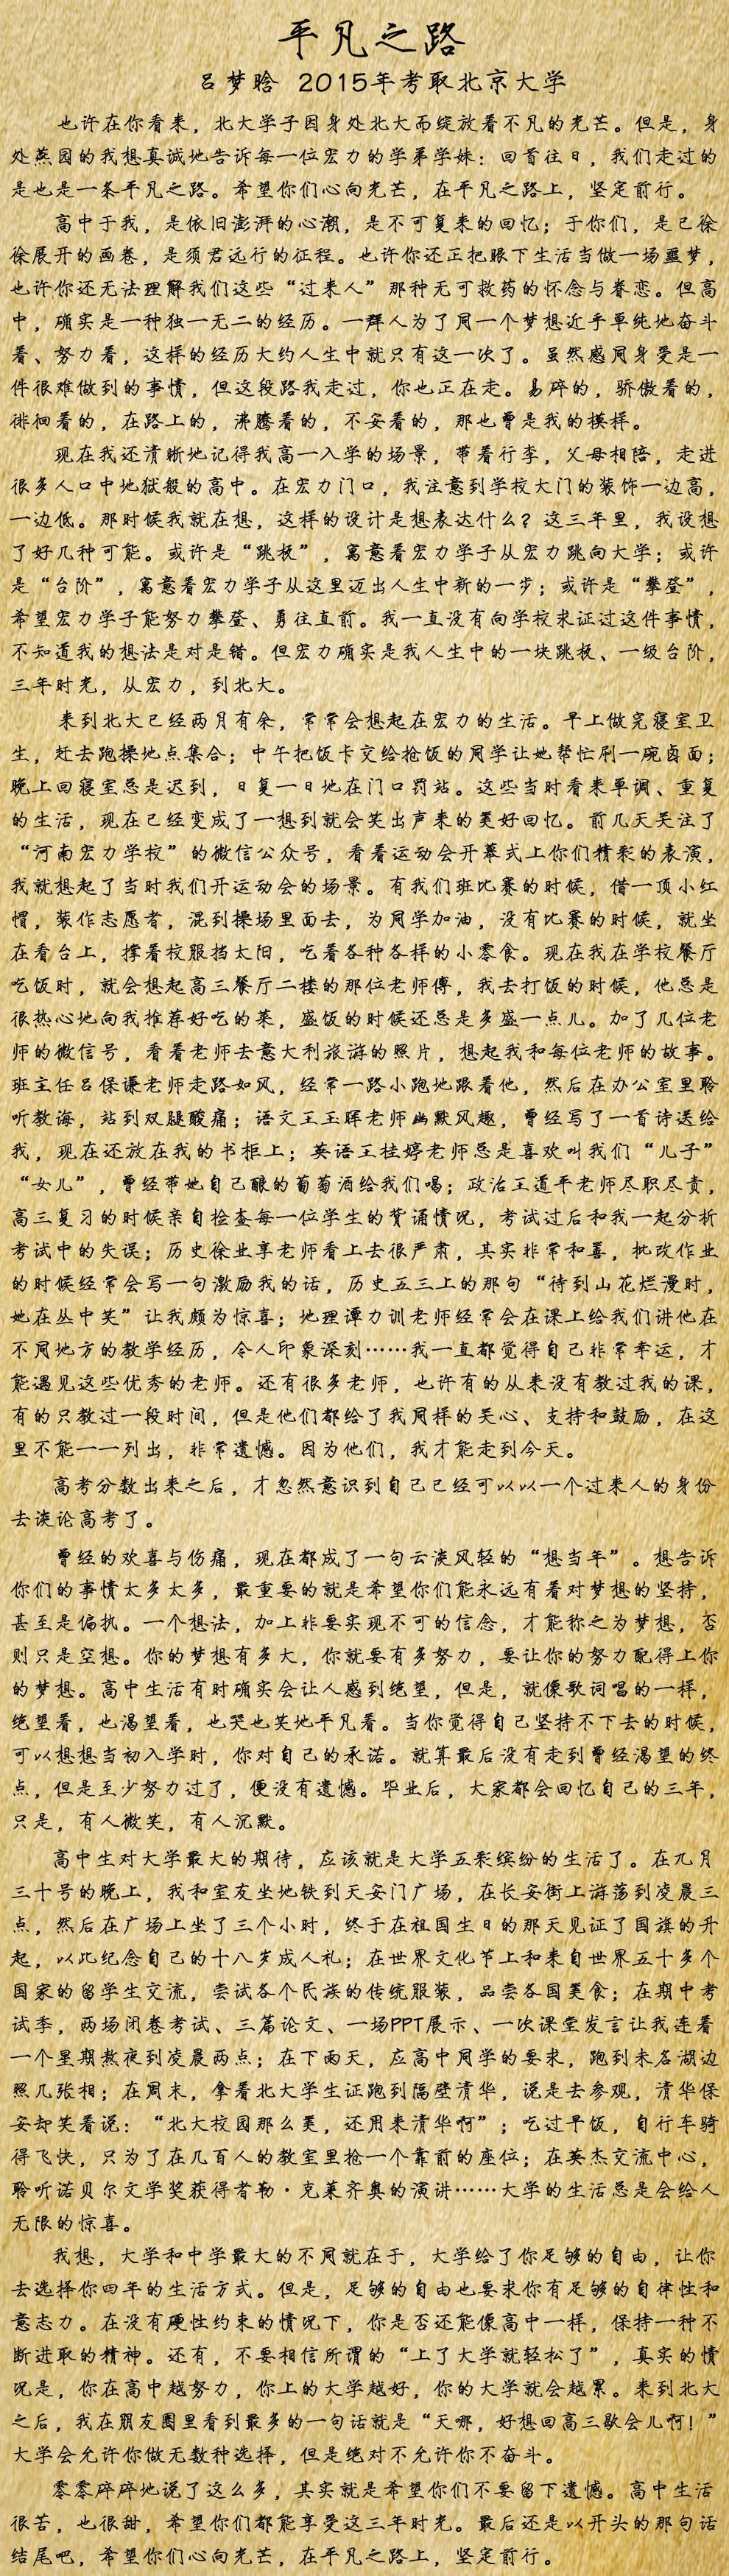 平凡之路
吕梦晗 2015年考取北京大学
也许在你看来，北大学子因身处北大而绽放着不凡的光芒。但是，身
处燕园的我想真诚地告诉每一位宏力的学弟学妹：回首往日，我们走过的
是也是一条平凡之路。希望你们心向光芒，在平凡之路上，坚定前行。
高中于我，是依旧澎湃的心潮，是不可复来的回忆；于你们，是已徐
徐展开的画卷，是须君远行的征程。也许你还正把眼下生活当做一场噩梦，
也许你还无法理解我们这些“过来人”那种无可救药的怀念与眷恋。但高
中，确实是一种独一无二的经历。一群人为了同一个梦想近乎单纯地奋斗
着、努力着，这样的经历大约人生中就只有这一次了。虽然感同身受是一
件很难做到的事情，但这段路我走过，你也正在走。易碎的，骄傲着的，
徘徊着的，在路上的，沸腾着的，不安着的，那也曾是我的模样。
现在我还清晰地记得我高一入学的场景，带着行李，父母相陪，走进
很多人口中地狱般的高中。在宏力门口，我注意到学校大门的装饰一边高，
一边低。那时候我就在想，这样的设计是想表达什么？这三年里，我设想
了好几种可能。或许是“跳板”，寓意着宏力学子从宏力跳向大学；或许
是“台阶”，寓意着宏力学子从这里迈出人生中新的一步；或许是“攀登”，
希望宏力学子能努力攀登、勇往直前。我一直没有向学校求证过这件事情，
不知道我的想法是对是错。但宏力确实是我人生中的一块跳板、一级台阶，
三年时光，从宏力，到北大。
来到北大已经两月有余，常常会想起在宏力的生活。早上做完寝室卫
生，赶去跑操地点集合；中午把饭卡交给抢饭的同学让她帮忙刷一碗卤面；
晚上回寝室总是迟到，日复一日地在门口罚站。这些当时看来单调、重复
的生活，现在已经变成了一想到就会笑出声来的美好回忆。前几天关注了
“河南宏力学校”的微信公众号，看着运动会开幕式上你们精彩的表演，
我就想起了当时我们开运动会的场景。有我们班比赛的时候，借一顶小红
帽，装作志愿者，混到操场里面去，为同学加油，没有比赛的时候，就坐
在看台上，撑着校服挡太阳，吃着各种各样的小零食。现在我在学校餐厅
吃饭时，就会想起高三餐厅二楼的那位老师傅，我去打饭的时候，他总是
很热心地向我推荐好吃的菜，盛饭的时候还总是多盛一点儿。加了几位老
师的微信号，看着老师去意大利旅游的照片，想起我和每位老师的故事。
班主任吕保谦老师走路如风，经常一路小跑地跟着他，然后在办公室里聆
听教海，站到双腿酸痛；语文王玉晖老师幽默风趣，曾经写了一首诗送给
我，现在还放在我的书柜上；英语王桂婷老师总是喜欢叫我们“儿子”
“女儿”，曾经带她自己酿的葡萄酒给我们喝；政治王道平老师尽职尽责，
高三复习的时候亲自检查每一位学生的背诵情况，考试过后和我一起分析
考试中的失误；历史徐业享老师看上去很严肃，其实非常和善，批改作业
的时候经常会写一句激励我的话，历史五三上的那句“待到山花烂漫时，
她在丛中笑”让我颇为惊喜；地理谭力训老师经常会在课上给我们讲他在
不同地方的教学经历，令人印象深刻……我一直都觉得自己非常幸运，才
能遇见这些优秀的老师。还有很多老师，也许有的从来没有教过我的课，
有的只教过一段时间，但是他们都给了我同样的关心、支持和鼓励，在这
里不能一一列出，非常遗憾。因为他们，我才能走到今天。
高考分数出来之后，才忽然意识到自己已经可以以一个过来人的身份
去谈论高考了。
曾经的欢喜与伤痛，现在都成了一句云淡风轻的“想当年”。想告诉
你们的事情太多太多，最重要的就是希望你们能永远有着对梦想的坚持，
甚至是偏执。一个想法，加上非要实现不可的信念，才能称之为梦想，否
则只是空想。你的梦想有多大，你就要有多努力，要让你的努力配得上你
的梦想。高中生活有时确实会让人感到绝望，但是，就像歌词唱的一样，
绝望着，也渴望着，也哭也笑地平凡着。当你觉得自己坚持不下去的时候，
可以想想当初入学时，你对自己的承诺。就算最后没有走到曾经渴望的终
点，但是至少努力过了，便没有遗憾。毕业后，大家都会回忆自己的三年，
只是，有人微笑，有人沉默。
高中生对大学最大的期待，应该就是大学五彩缤纷的生活了。在九月
三十号的晚上，我和室友坐地铁到天安门广场，在长安街上游荡到凌晨三
点，然后在广场上坐了三个小时，终于在祖国生日的那天见证了国旗的升
起，以此纪念自己的十八岁成人礼；在世界文化节上和来自世界五十多个
国家的留学生交流，尝试各个民族的传统服装，品尝各国美食；在期中考
试季，两场闭卷考试、三篇论文、一场PPT展示、一次课堂发言让我连着
一个星期熬夜到凌晨两点；在下雨天，应高中同学的要求，跑到未名湖边
照几张相；在周末，拿着北大学生证跑到隔壁清华，说是去参观，清华保
安却笑着说：“北大校园那么美，还用来清华啊”；吃过早饭，自行车骑
得飞快，只为了在几百人的教室里抢一个靠前的座位；在英杰交流中心，
聆听诺贝尔文学奖获得者勒·克莱齐奥的演讲……大学的生活总是会给人
无限的惊喜。
我想，大学和中学最大的不同就在于，大学给了你足够的自由，让你
去选择你四年的生活方式。但是，足够的自由也要求你有足够的自律性和
意志力。在没有硬性约束的情况下，你是否还能像高中一样，保持一种不
断进取的精神。还有，不要相信所谓的“上了大学就轻松了”，真实的情
况是，你在高中越努力，你上的大学越好，你的大学就会越累。来到北大
之后，我在朋友圈里看到最多的一句话就是“天哪，好想回高三歇会儿啊！”
大学会允许你做无数种选择，但是绝对不允许你不奋斗。
零零碎碎地说了这么多，其实就是希望你们不要留下遗憾。高中生活
很苦，也很甜，希望你们都能享受这三年时光。最后还是以开头的那句话
结尾吧，希望你们心向光芒，在平凡之路上，坚定前行。